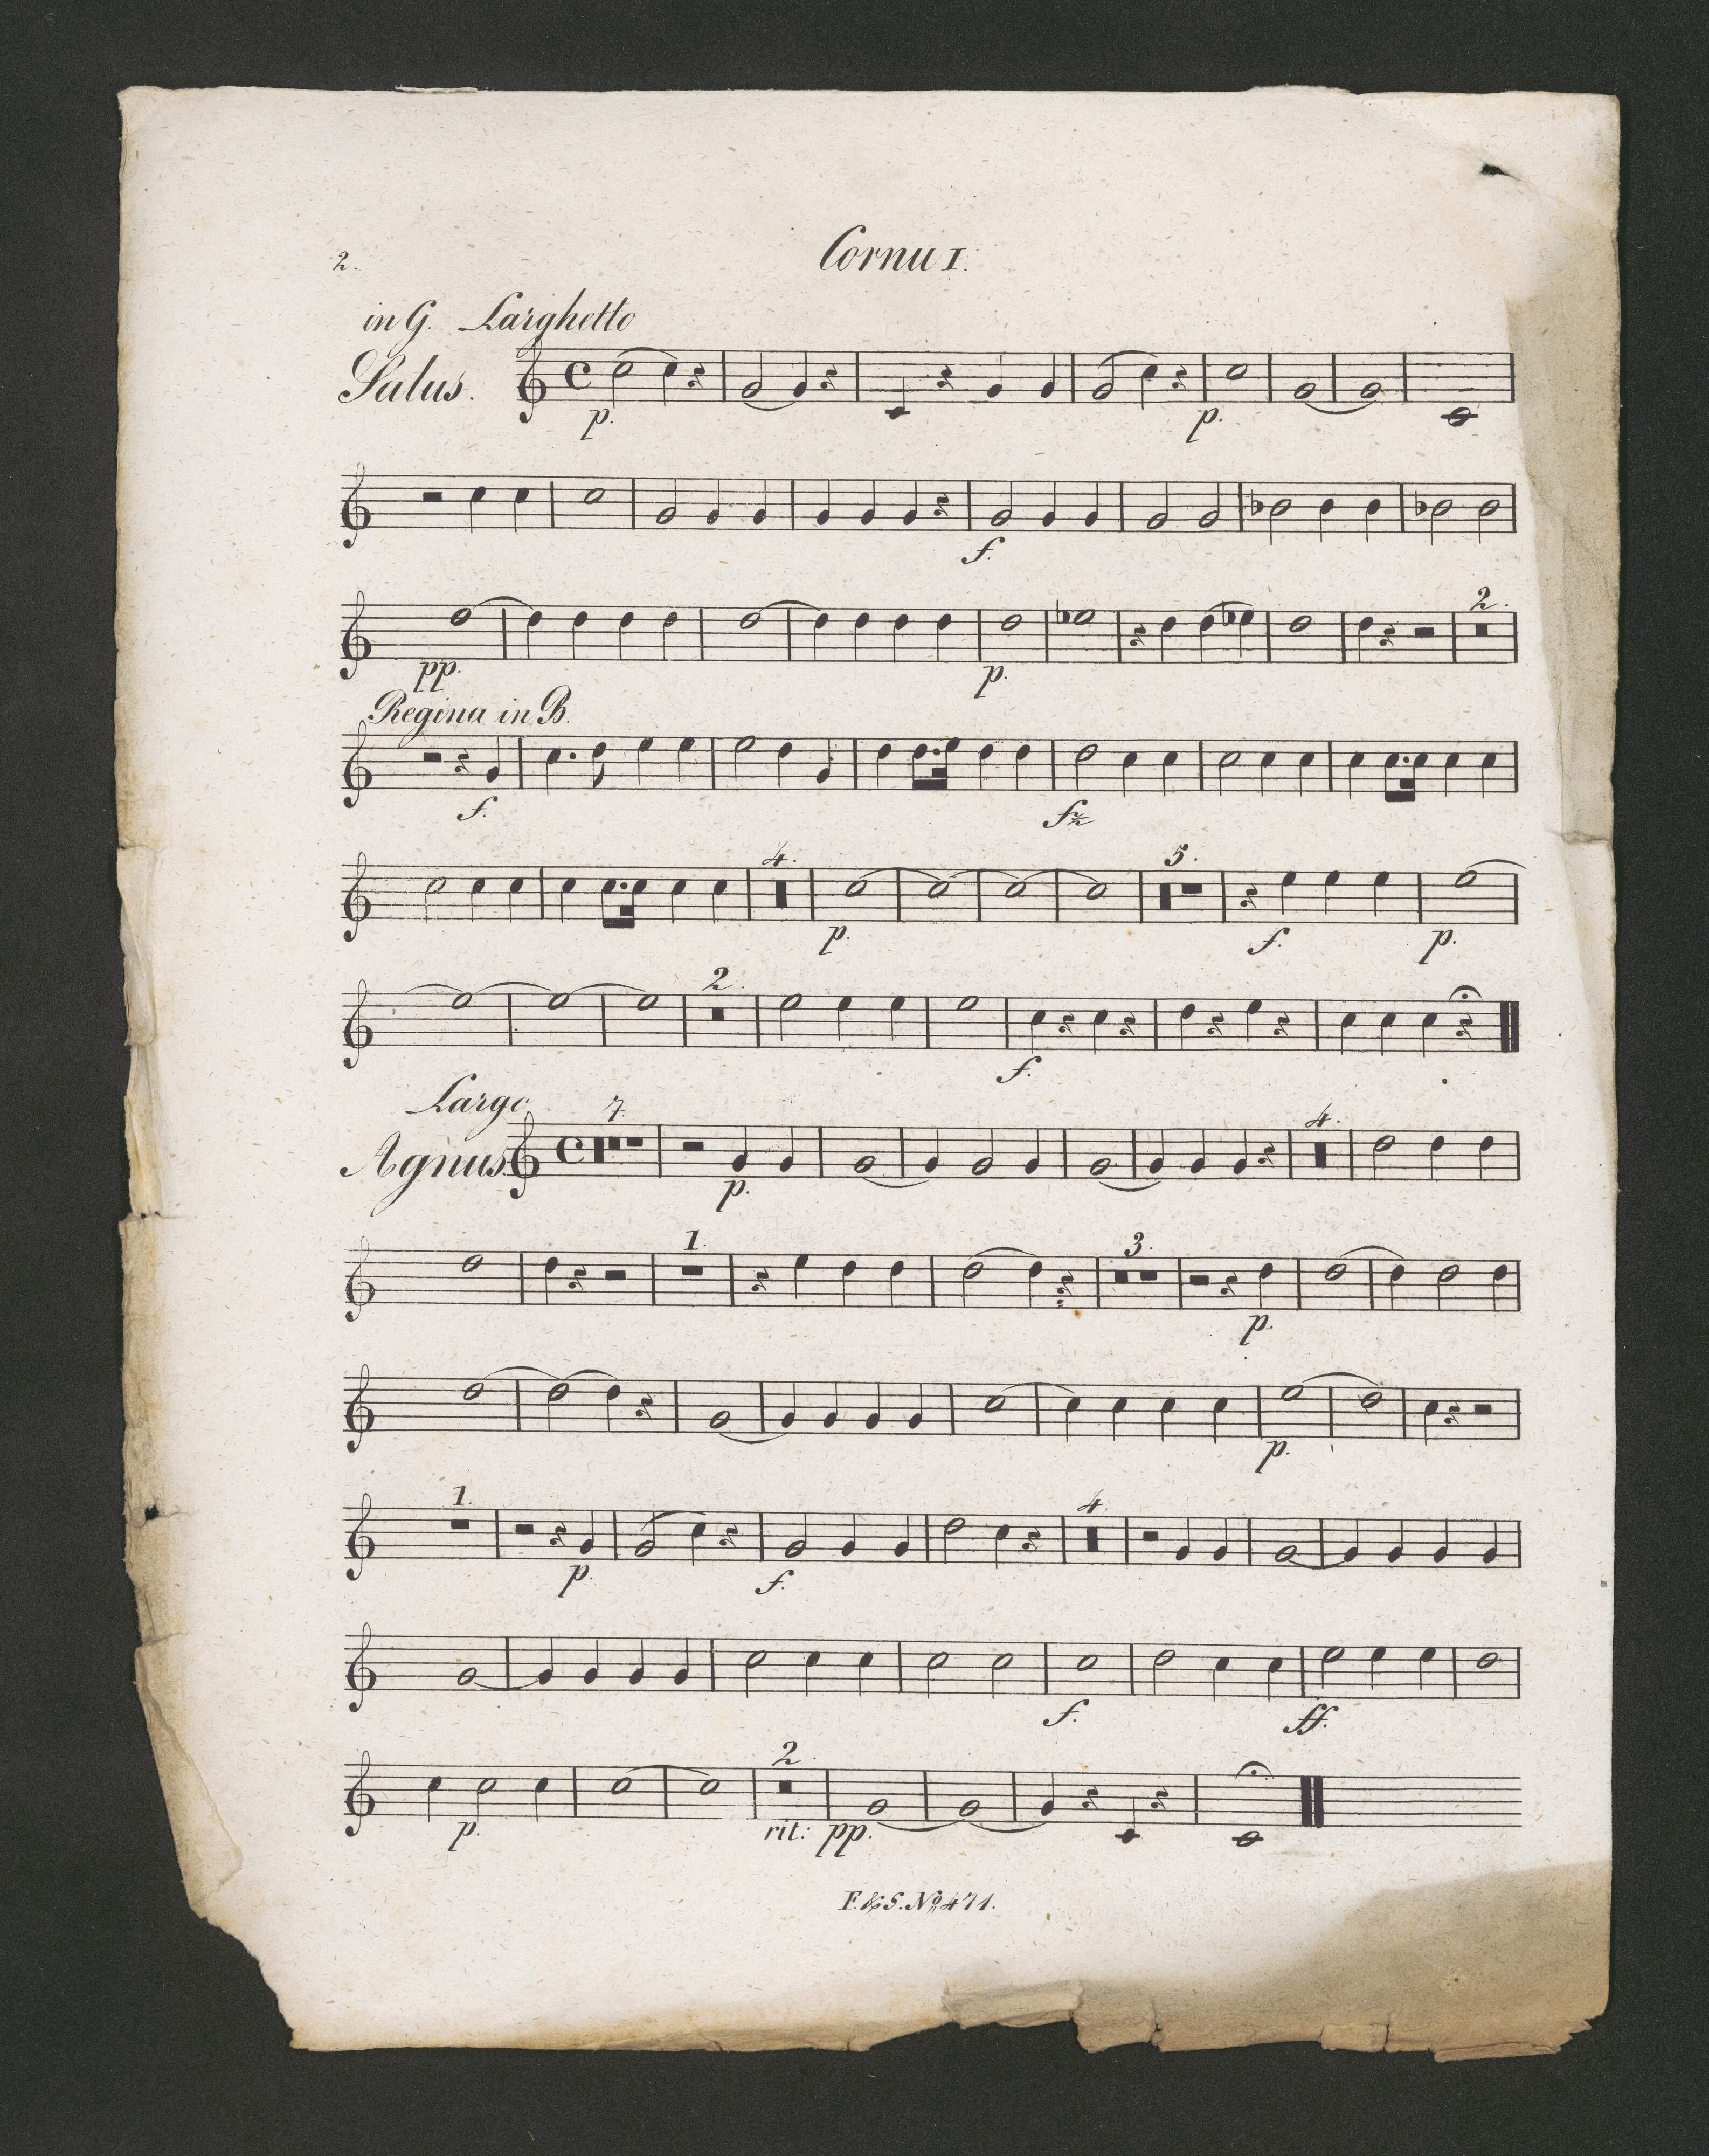 2. Cornu I.
in G. Larghetto
Salus.
p. p.
f.
2.
pp. p.
Regina in B.
f. fz
4. 5.
p. f. p.
2.
f.
Largo 7.
Agnus. 4.
p.
1. 3.
p.
p.
1. 4.
p. f.
f. ff.
2.
p. rit: pp.
F. & S. No 471.